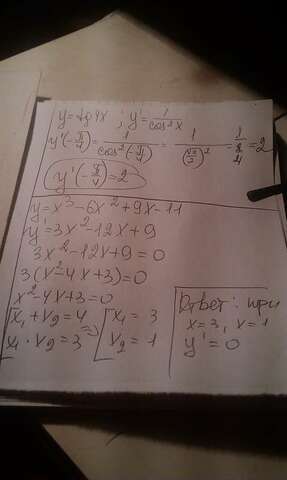 y = tg 4x ; y' = 1/cos² x
y'(-π/4) = 1/cos²(-π/4) = 1/(√2/2)² = 1/(2/4) = 2
y'(-π/4) = 2
y = x³ - 6x² + 9x - 11
y' = 3x² - 12x + 9
3x² - 12x + 9 = 0
3(x² - 4x + 3) = 0
x² - 4x + 3 = 0
[x₁ + x₂ = 4
x₁ · x₂ = 3 => [x₁ = 3
x₂ = 1
Ответ: при
x = 3, x = 1
y' = 0